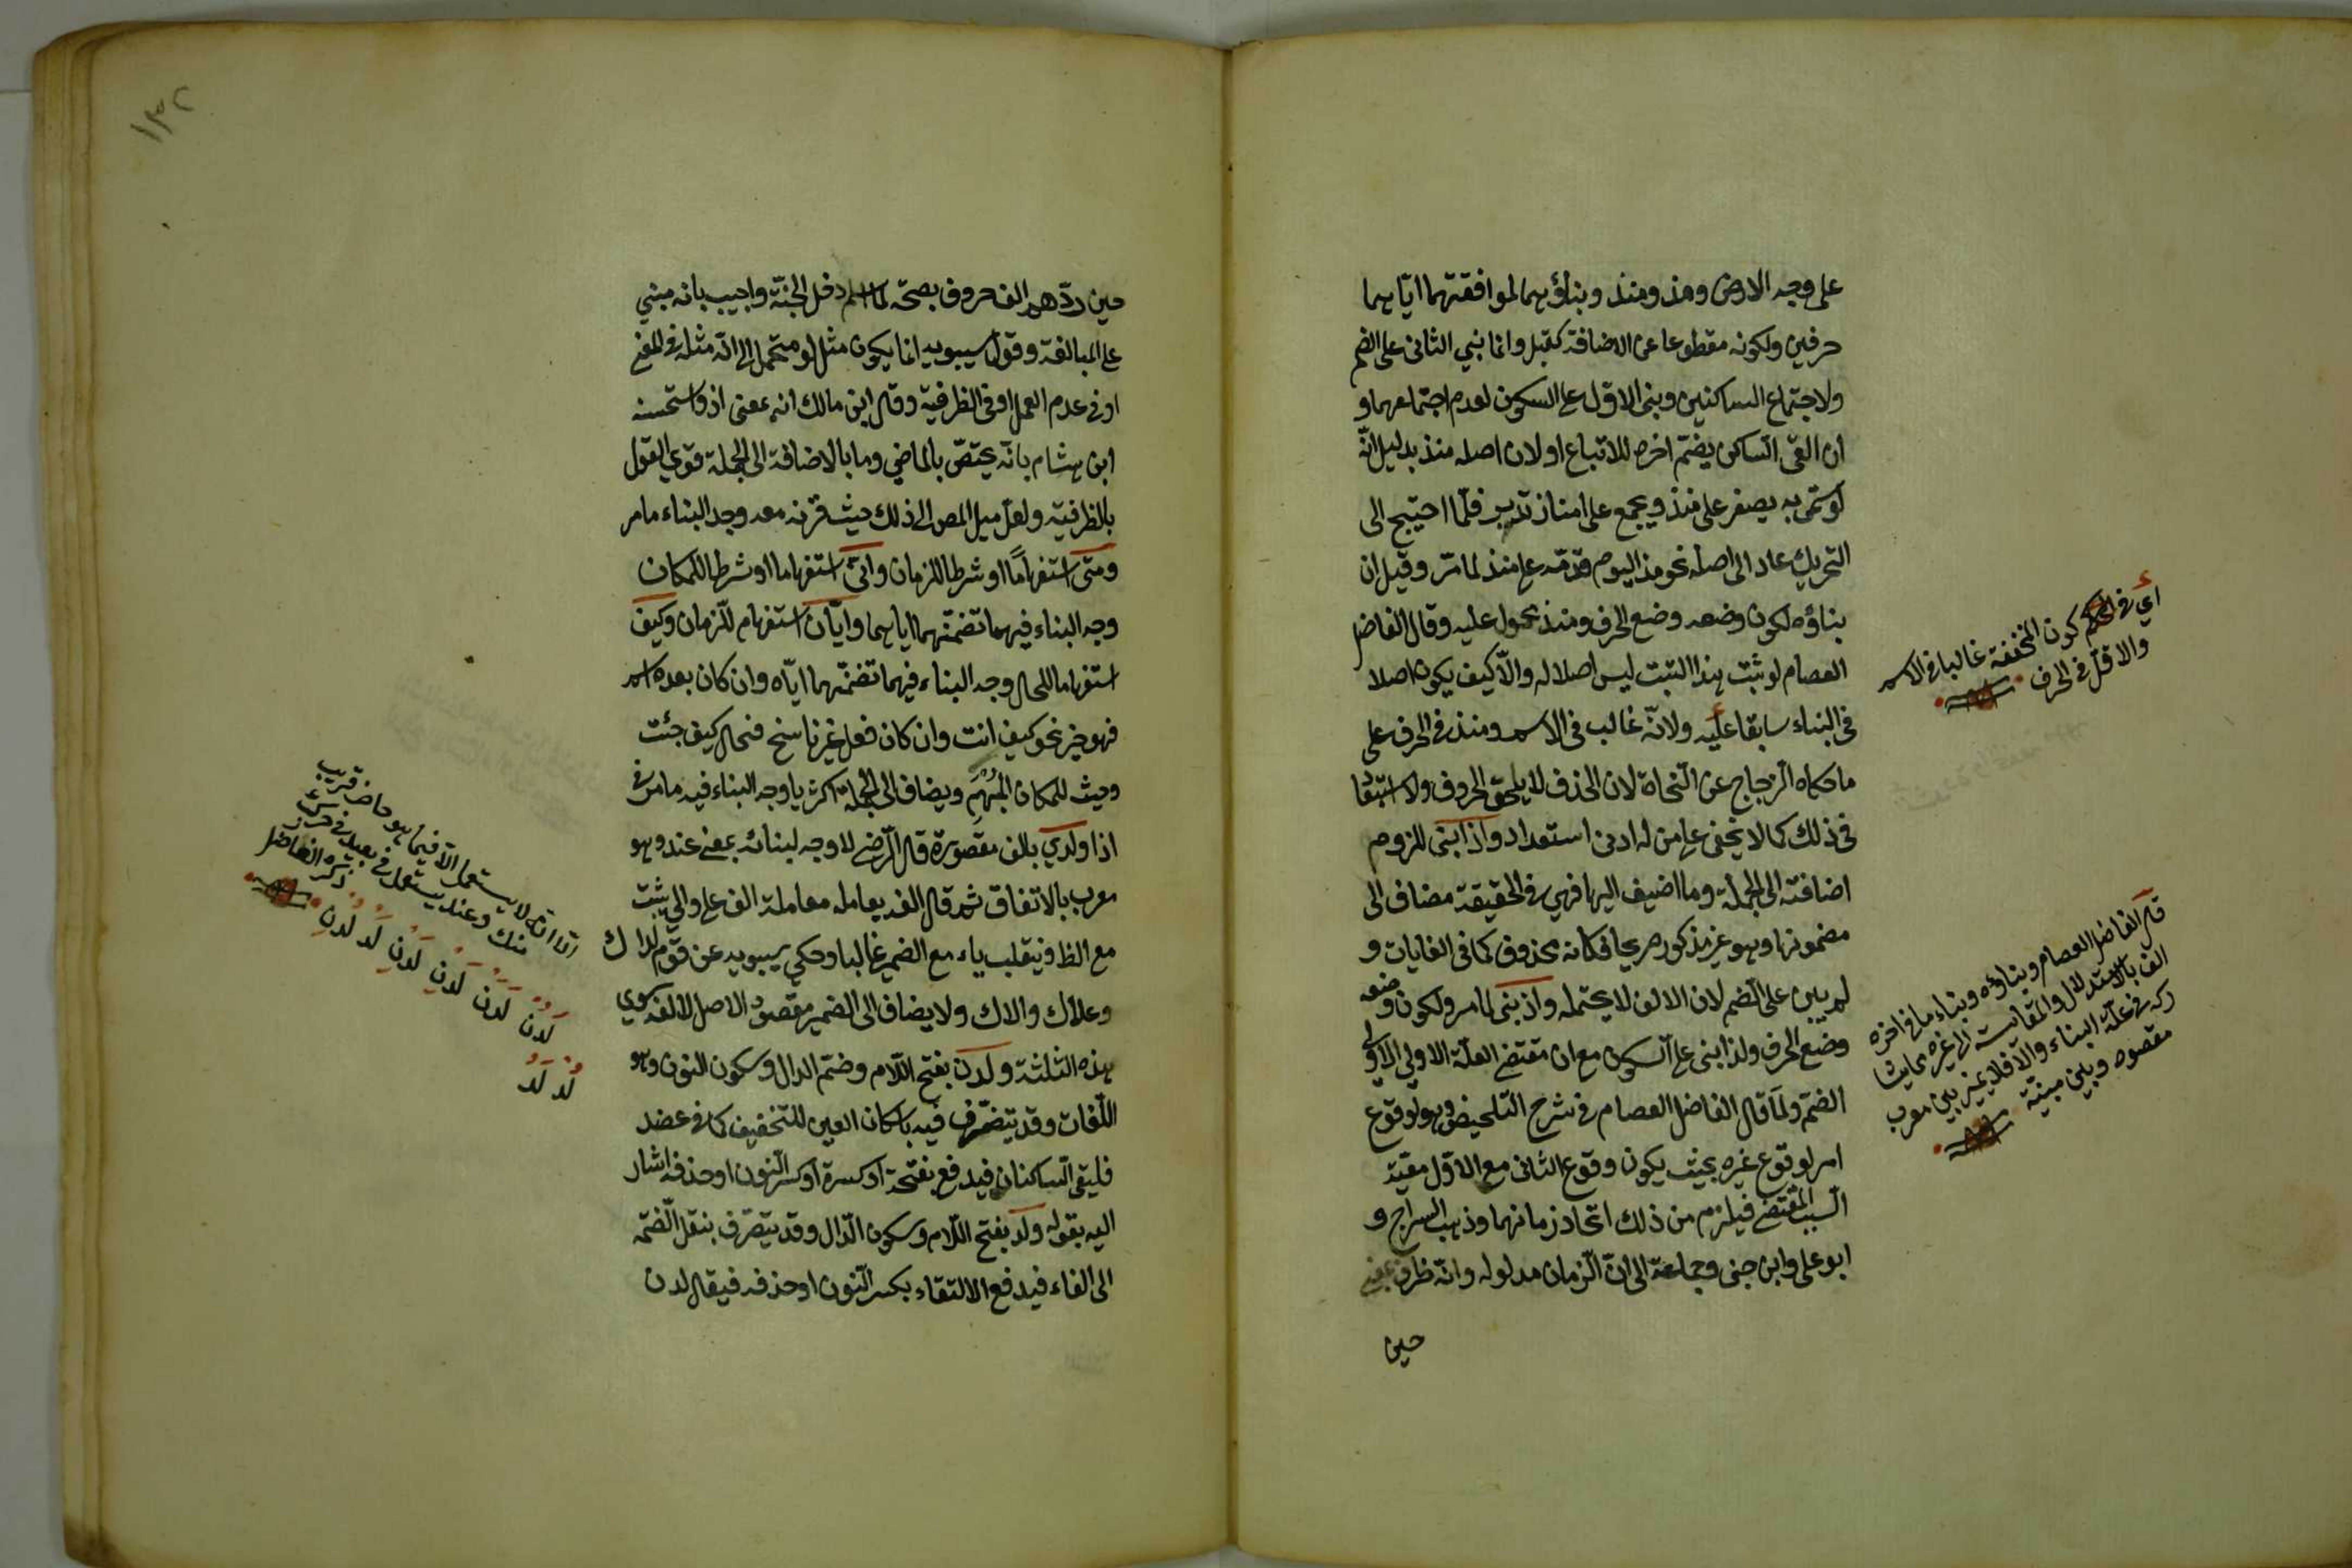 على وجه الارض ومذ ومنذ وبناؤهما لموافقتهما اياهما
حرفين ولكونه مقطوعا عن الاضافة كقبل وانما بني الثانى على الضم
ولاجتماع الساكنين وبنى الاول على السكون لعدم اجتماعهما و
ان القى الساكن يضم اخره للاتباع او لان اصله منذ بدليل انه
لو سمى به يصغر على منيذ ويجمع على امناذ تدبر فلما احتيج الى
التحريك عاد الى اصله نحو مذ اليوم قدمه على منذ لما مر وقيل ان
بناؤه لكون وضعه وضع الحرف ومنذ محمول عليه وقال الفاضل
العصام لو ثبت هذا الثبت ليس اصلا له والا كيف يكون اصلا
فى البناء سابقا عليه ولانه غالب فى الاسم ومنذ فى الحرف على
ما حكاه الزجاج عن النحاة لان الحذف لا يلحق الحروف ولا استبقا
فى ذلك كما لا يخفى على من له ادنى استعداد واذا بنى للزوم
اضافته الى الجملة وما اضيف اليها فهي فى الحقيقة مضاف الى
مضمونها وهو غير مذكور صريحا فكانه محذوف كما فى الغايات و
لم يبن على الضم لان الالف لا يحتمله واذ بنى لما مر ولكون وضعه
وضع الحرف ولذا بنى على السكون مع ان مقتضى العلة الاولى الاولى
الضم ولما قال الفاضل العصام فى شرح التلخيص وهو لوقوع
امر لوقوع غيره بحيث يكون وقوع الثانى مع الاول معية
السبب المقتضى فيلزم من ذلك اتحاد زمانهما وذهب السراج و
ابو على وابن جنى وجماعة الى ان الزمان مدلوله وانه ظرف بمعنى
حين
اي فى الحكم كون المخففة غالبا فى الاسم
والاقل فى الحرف
قال الفاضل العصام وبناؤه وبناء ما فى اخره
الف بالاستدلال والمقايسة الى غيره مما يشا
ركه فى علة البناء والا فلا يميز بين معرب
مقصوره وبين مبنيه
١٣٢
حين ردهم الف حروف بصحة لما اسلم دخل الجنة واجيب بانه مبني
على المبالغة وقول سيبويه انما يكون مثل لو محتمل الى انه مثله فى المعنى
او فى عدم العمل او فى الظرفية وقال ابن مالك انه بمعنى اذ واستحسنه
ابن هشام بانه يختص بالماضي وما بالاضافة الى الجملة قوي القول
بالظرفية ولعل ميل المص الى ذلك حيث قرنه معه وجه البناء ما مر
ومتى استفهاما او شرطا للزمان وانى استفهاما او شرطا للمكان
وجه البناء فيهما تضمنهما اياهما وايان استفهام للزمان وكيف
استفهاما للحال وجه البناء فيهما تضمنهما اياه وان كان بعده اسم
فهو خبر نحو كيف انت وان كان فعل غير ناسخ فحال كيف جئت
وحيث للمكان المبهم ويضاف الى الجملة اكثريا وجه البناء فيه ما مر فى
اذا ولدي بالف مقصورة قال الرضى لا وجه لبنائه بمعنى عند وهو
معرب بالاتفاق ثم قال الفه يعامله معاملة الف على والى يثبت
مع الظ وينقلب ياء مع الضمير غالبا وحكى سيبويه عن قوم لداك
وعلاك والاك ولا يضاف الى الضمير مقصور الاصل لالفه سوي
هذه الثلثة ولدن بفتح اللام وضم الدال وسكون النون وهو
اللغات وقد يتصرف فيه باسكان العين للتخفيف كما فى عضد
فليقى الساكنان فيدفع بفتحة او كسرة او كسر النون او حذفه اشار
اليه بقوله ولد بفتح اللام وسكون الدال وقد يتصرف بنقل الضمه
الى الفاء فيدفع الالتقاء بكسر النون او حذفه فيقال لدن
الا انه لا يستعمل الا فيما هو حاضر قريب
منك وعند يستعمل فى بعيد فى حرزك
ذكره الفاضل
لَدُنْ لَدَنْ لَدِنْ لَدْنِ لَدْ لُدْنِ
لُدْ لَدُ